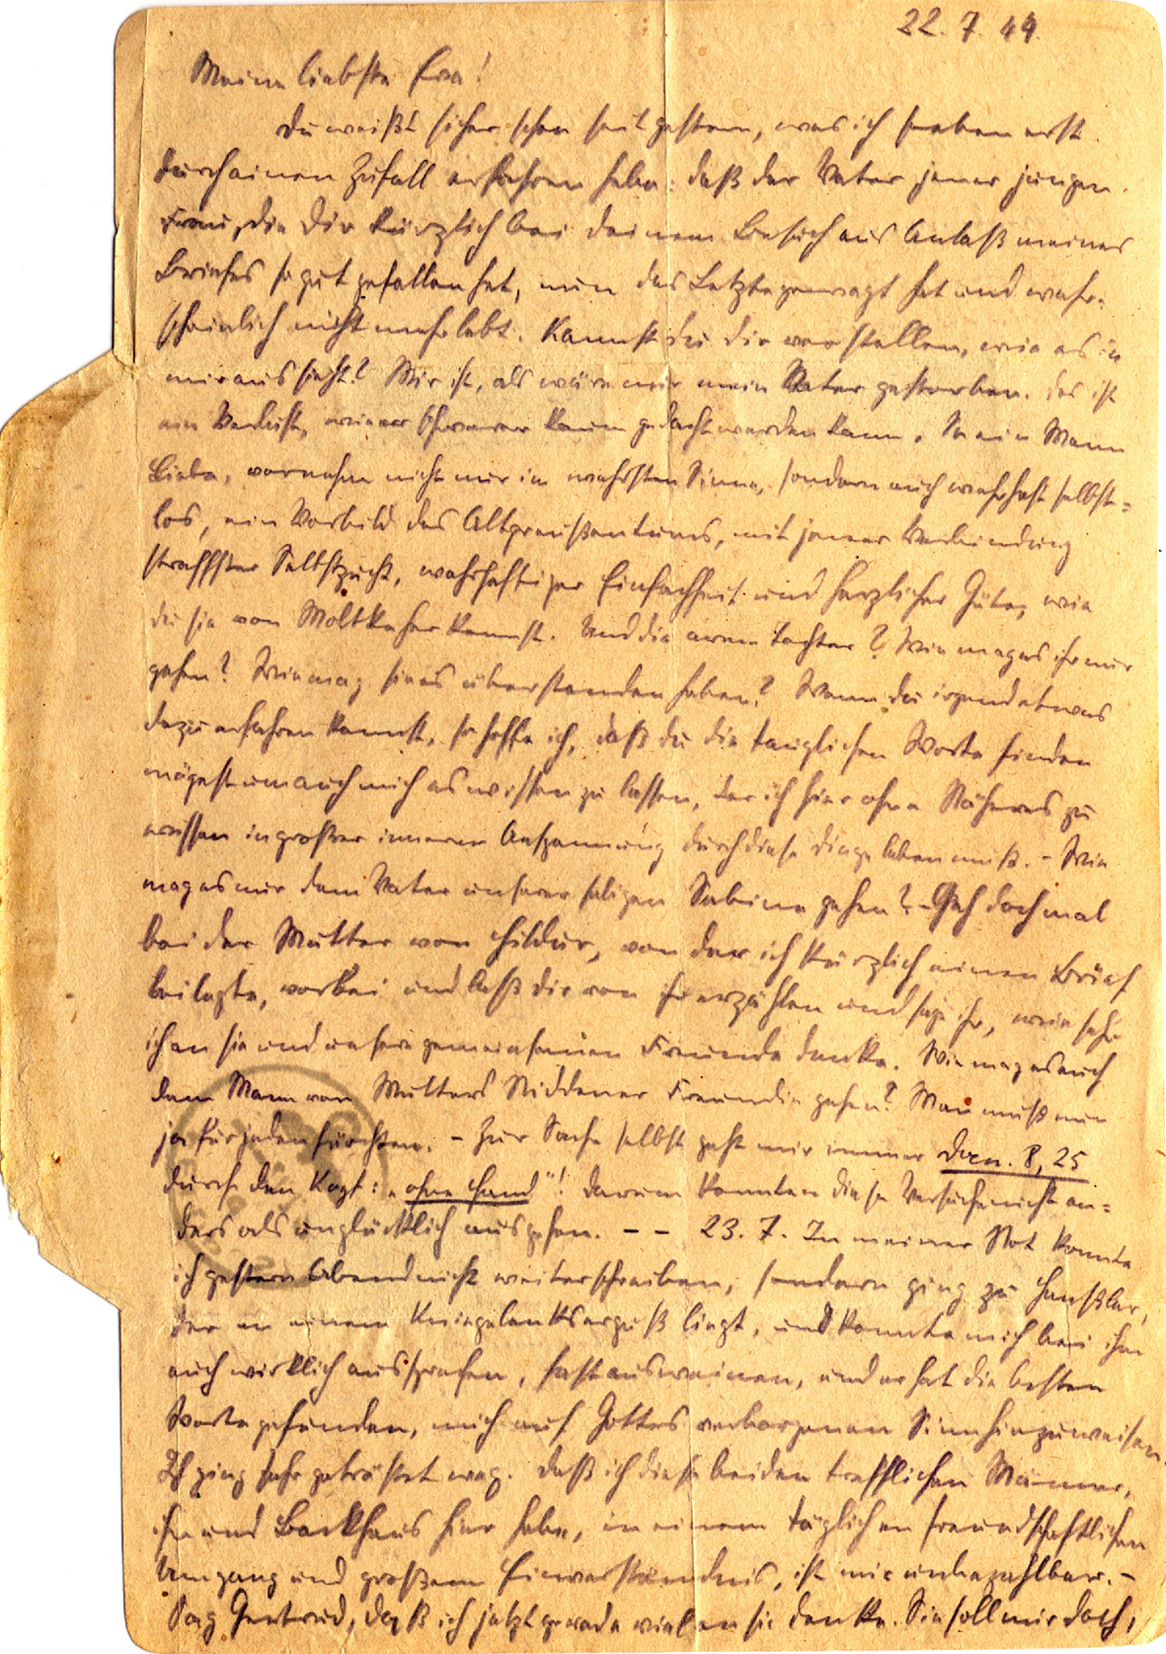 22. 7. 44.
Meine liebste Eva!
Du weißt sicher schon seit gestern, was ich soeben erst
durch einen Zufall erfahren habe: daß der Vater jener jungen
Frau, die Dir kürzlich bei deinem Besuch aus Anlaß meines
Briefes so gut gefallen hat, nun das Letzte gewagt hat und wahr-
scheinlich nicht mehr lebt. Kannst du dir vorstellen, wie es in
mir aussieht? Mir ist, als wäre mir mein Vater gestorben. Das ist
ein Verlust, wie er schwerer kaum gedacht werden kann. So ein Mann
Liebe, vornehm nicht nur im wahrsten Sinne, sondern auch wahrhaft selbst-
los, ein Vorbild des Altpreußentums, mit jener Verbindung
straffster Selbstzucht, wahrhaftiger Einfachheit und herzlicher Güte, wie
du sie von Moltke her kennst. Und die arme Tochter? Wie mag es ihr nur
gehen? Wie mag sie es überstanden haben? Wenn du irgend etwas
dazu erfahren kannst, so hoffe ich, daß du die tauglichen Worte finden
mögest um auch mich es wissen zu lassen, der ich hier ohne Näheres zu
wissen in großer innerer Anspannung durch diese Dinge leben muß. - Wie
mag es nur dem Vater unserer seligen Sabine gehen? - Geh doch mal
bei der Mutter von Hildur, von der ich kürzlich einen Brief
beilegte, vorbei und laß dir von ihr erzählen und sage ihr, wie sehr
ich an sie und unsere gemeinsamen Freunde denke. Wie mag es auch
dem Mann von Mutters Niddener Freundin gehen? Man muß nun
ja für jeden fürchten. - Zur Sache selbst geht mir immer Dan. 8, 25
durch den Kopf: „ohne Hand"! Darum konnten diese Versuche nicht an-
ders als unglücklich ausgehen. - - 23. 7. In meiner Not konnte
ich gestern Abend nicht weiterschreiben, sondern ging zu
der an einem Kniegelenkserguß liegt, und konnte mich bei ihm
auch wirklich aussprechen, fast ausweinen, und er hat die besten
Worte gefunden, mich auf Gottes verborgenen Sinn hinzuweisen.
Ich ging sehr getröstet weg. Daß ich diese beiden trefflichen Männer,
ihn und Backhaus hier habe, in einem täglichen freundschaftlichen
Umgang und großem Einverständnis, ist mir unbezahlbar. -
Sag Gertrud, daß ich jetzt gerade viel an sie denke. Sie soll mir doch,